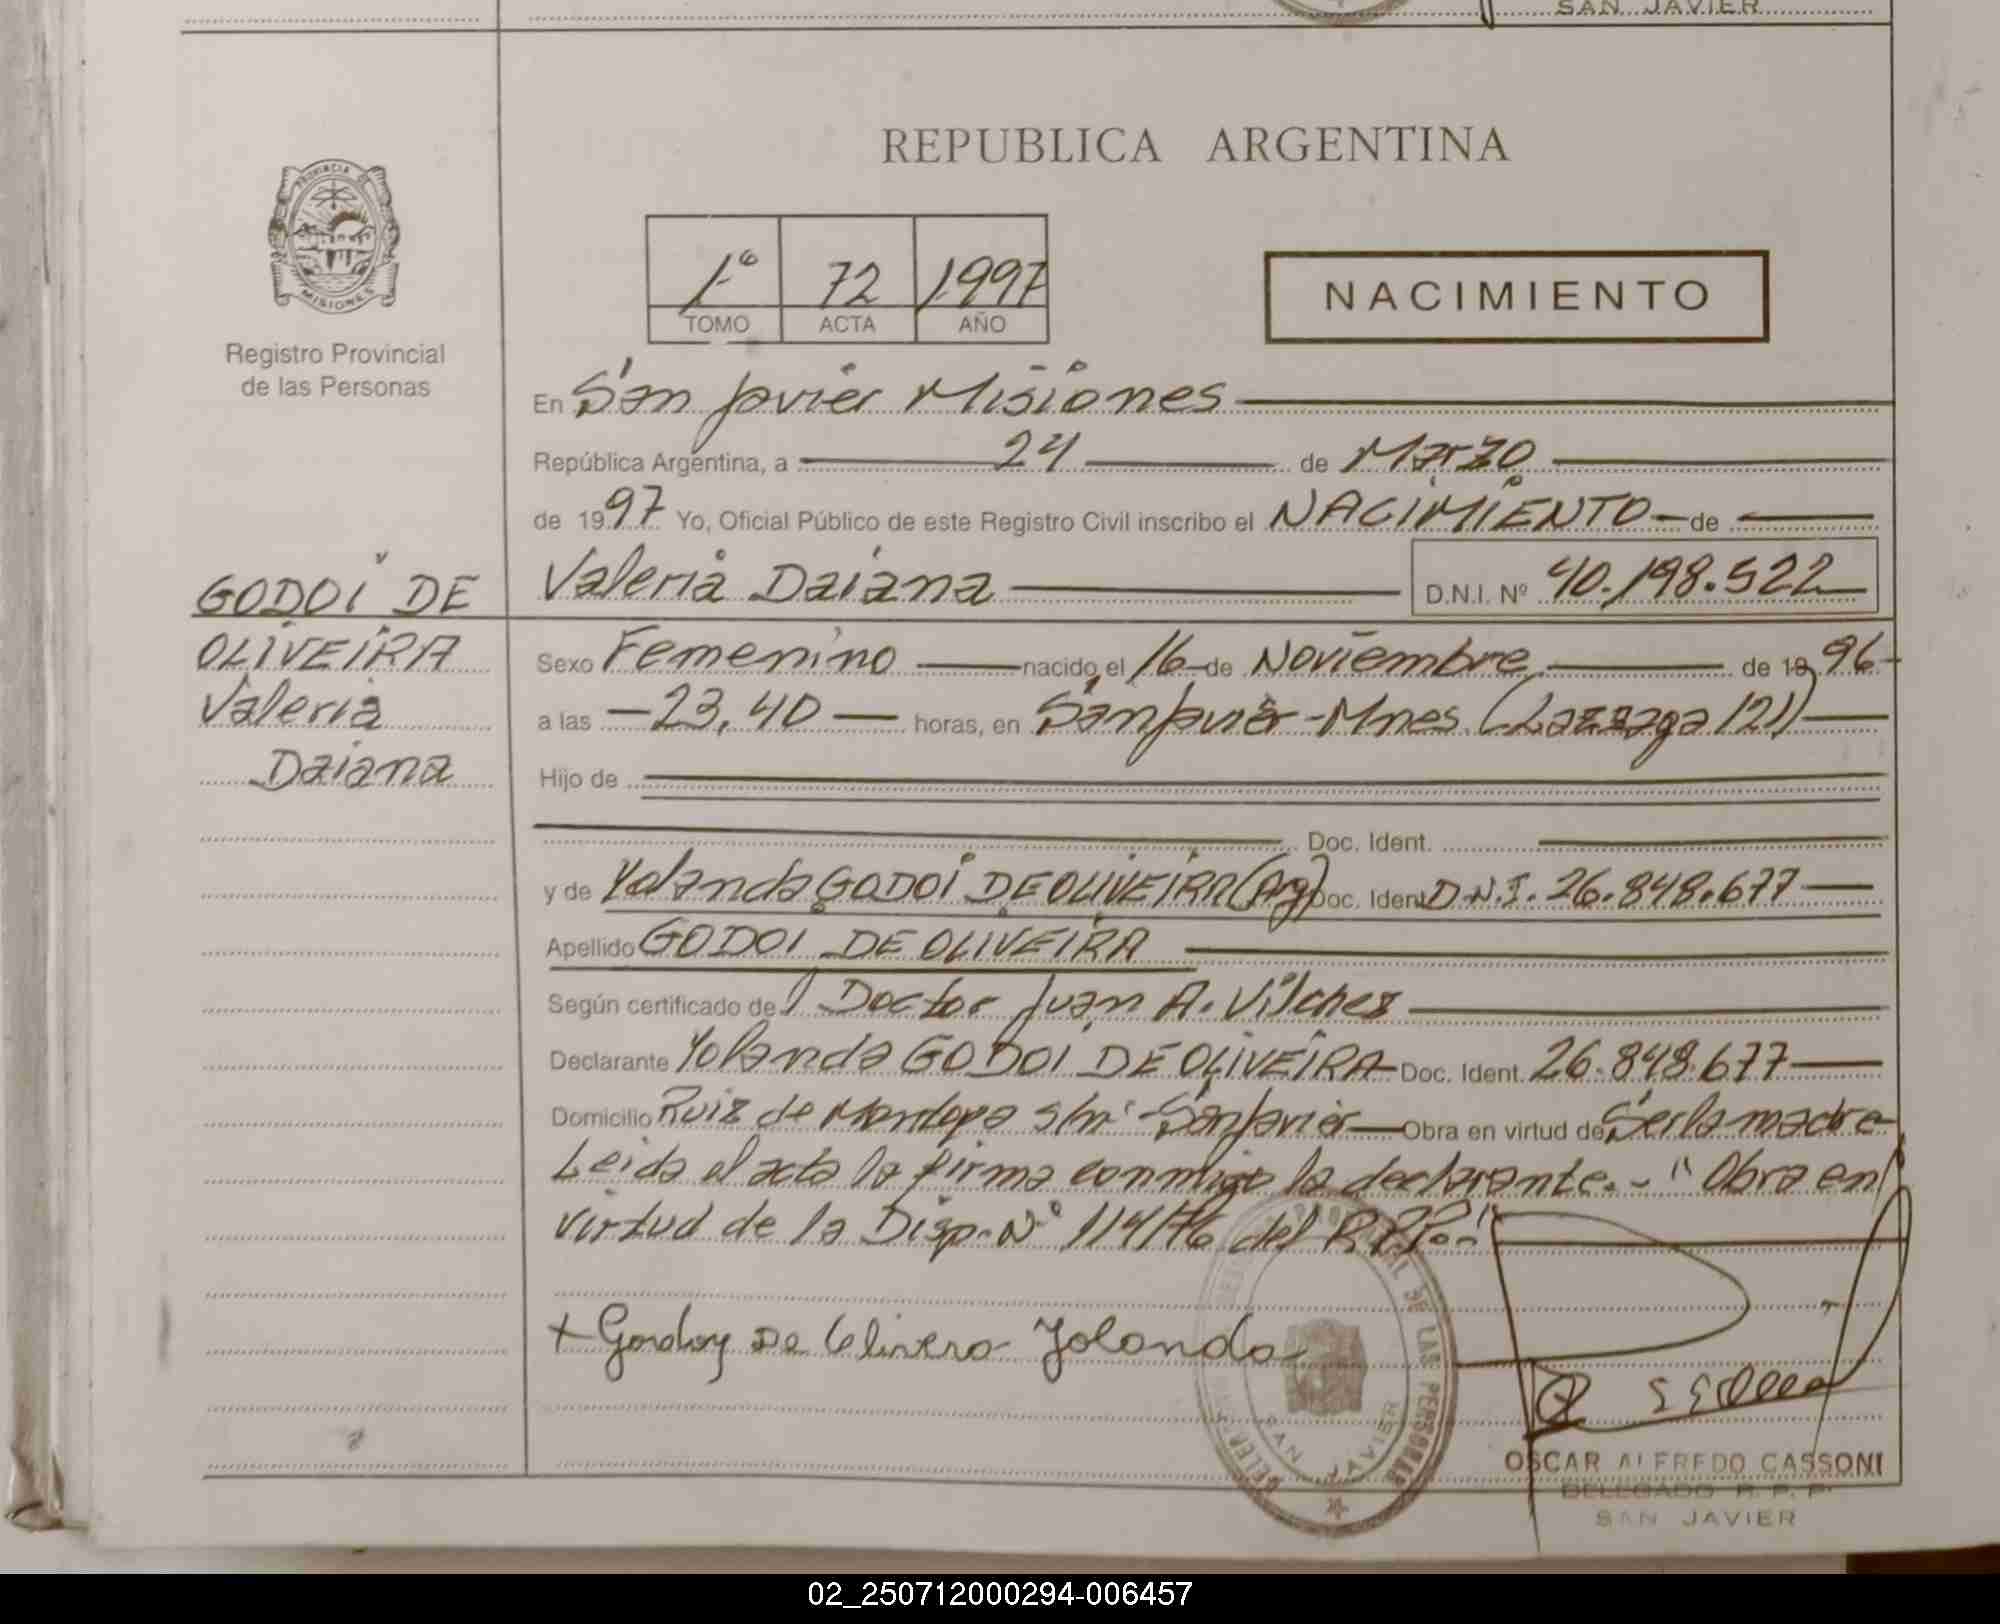 SAN JAVIER
PROVINCIA DE
MISIONES
Registro Provincial
de las Personas
REPUBLICA ARGENTINA
1º 72 1997
TOMO ACTA AÑO
NACIMIENTO
En San Javier Misiones
República Argentina, a 24 de Marzo
de 1997 Yo, Oficial Público de este Registro Civil inscribo el NACIMIENTO de
GODOI DE
OLIVEIRA
Valeria
Daiana
Valeria Daiana D.N.I. Nº 40.198.522
Sexo Femenino nacido el 16 de Noviembre de 1996
a las 23,40 horas, en San Javier-Mnes (Lazzaga 121)
Hijo de
Doc. Ident.
y de Yolanda GODOI DE OLIVEIRA (Arg) Doc. Ident D.N.I. 26.848.677
Apellido GODOI DE OLIVEIRA
Según certificado del Doctor Juan A. Vilchez
Declarante Yolanda GODOI DE OLIVEIRA Doc. Ident. 26.848.677
Domicilio Ruiz de Montoya s/nº - San Javier Obra en virtud de Ser la madre
Leida el acta la firma conmigo la declarante.- "Obra en
virtud de la Disp. Nº 114/76 del R.P.P."
+ Gordoy De Olivera Yolanda
SAN JAVIER
OSCAR ALFREDO CASSONI
DELEGADO R. P. P.
SAN JAVIER
02_250712000294-006457